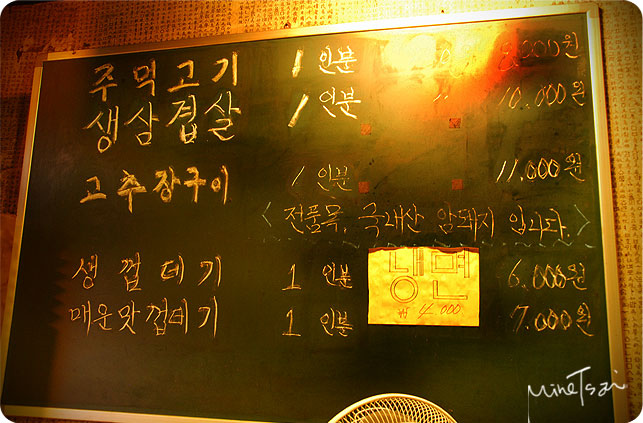 주먹고기 1 인분 " 8,000원
생삼겹살 1 인분 " 10,000원
고추장구이 1 인분 11,000원
< 전품목, 국내산 암돼지 입니다. >
생껍데기 1 인분 6,000원
매운맛껍데기 1 인분 7,000원
냉면
₩ 4,000
MineTsai